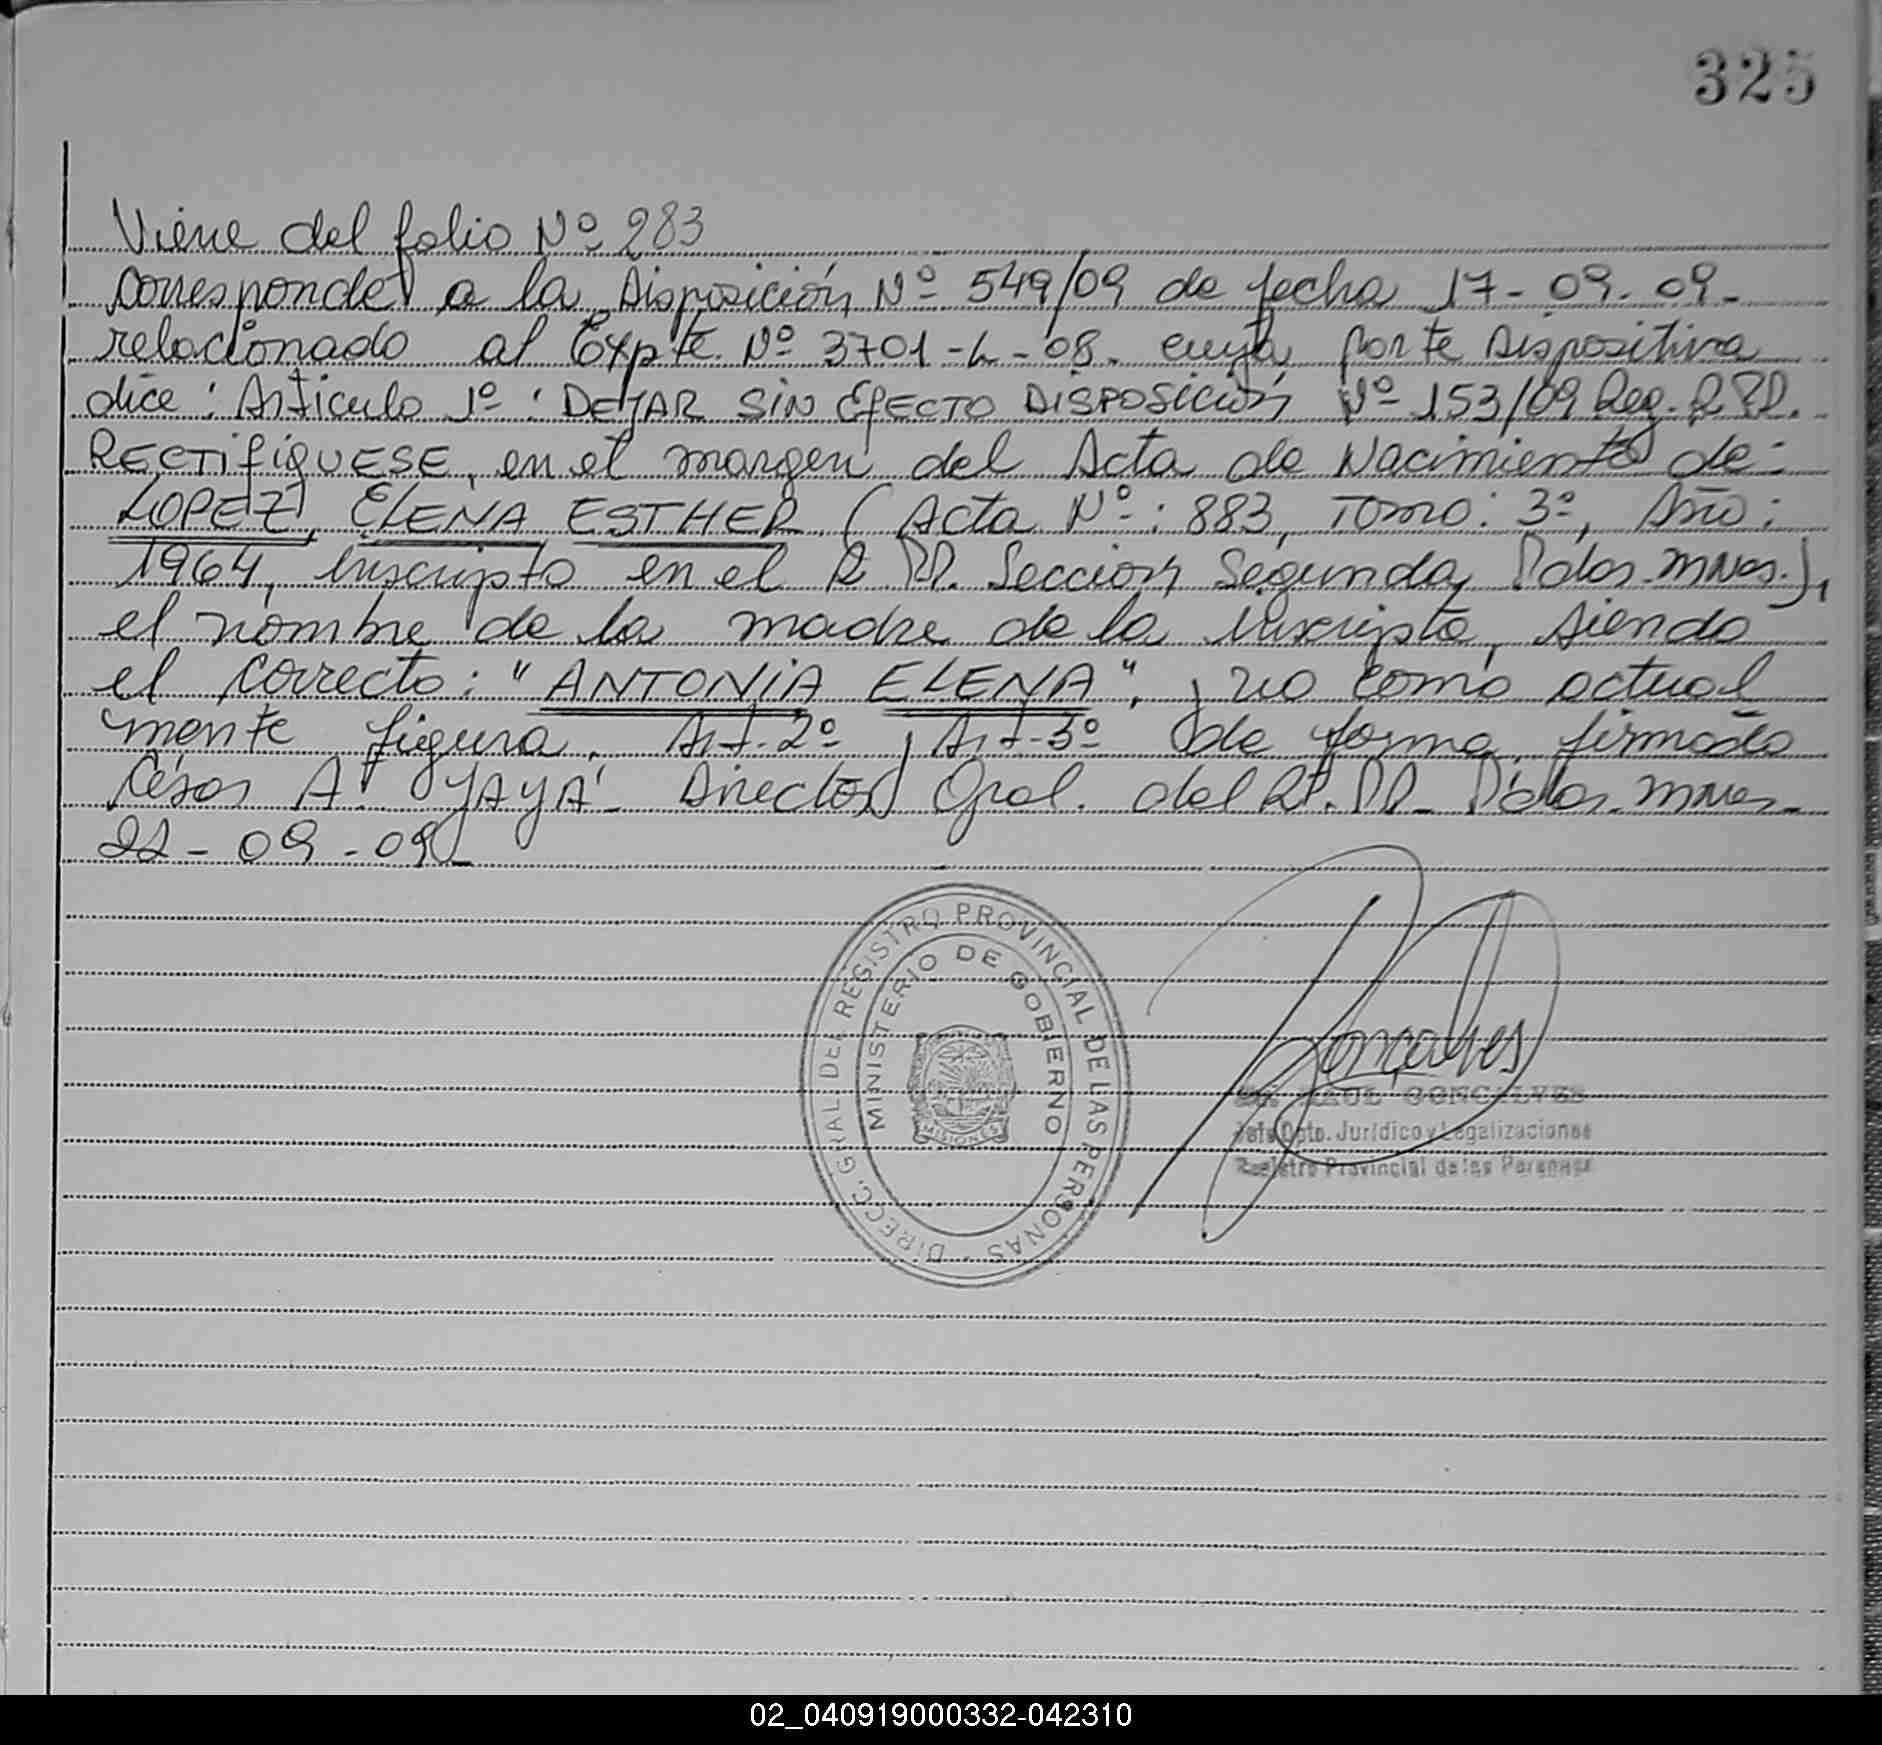 325
Viene del folio Nº 283
Corresponde a la Disposición Nº 549/09 de fecha 17-09-09-
relacionado al Expte. Nº 3701-L-08. cuya parte Dispositiva
dice: Artículo 1º: DEJAR SIN EFECTO DISPOSICIÓN Nº 153/09 Reg. R.P.P.
RECTIFIQUESE, en el margen del Acta de Nacimiento de:
LOPEZ, ELENA ESTHER. (Acta Nº: 883, Tomo: 3º, Año:
1964, Inscripta en el R.PP. Sección Segunda, Pdas. Mnes.),
el nombre de la madre de la Inscripta, siendo
el correcto: "ANTONIA ELENA", y no como actual
mente figura. Art. 2º y Art. 3º de forma, firmado
César A. YAYA- Director Gral. del R.PP- Pdas. Mnes-
22-09-09-
DIRECC. GRAL. DEL REGISTRO PROVINCIAL DE LAS PERSONAS
MINISTERIO DE GOBIERNO
MISIONES
Goncalves
RAUL GONCALVES
Jefe Dpto. Jurídico y Legalizaciones
Registro Provincial de las Personas
02_040919000332-042310